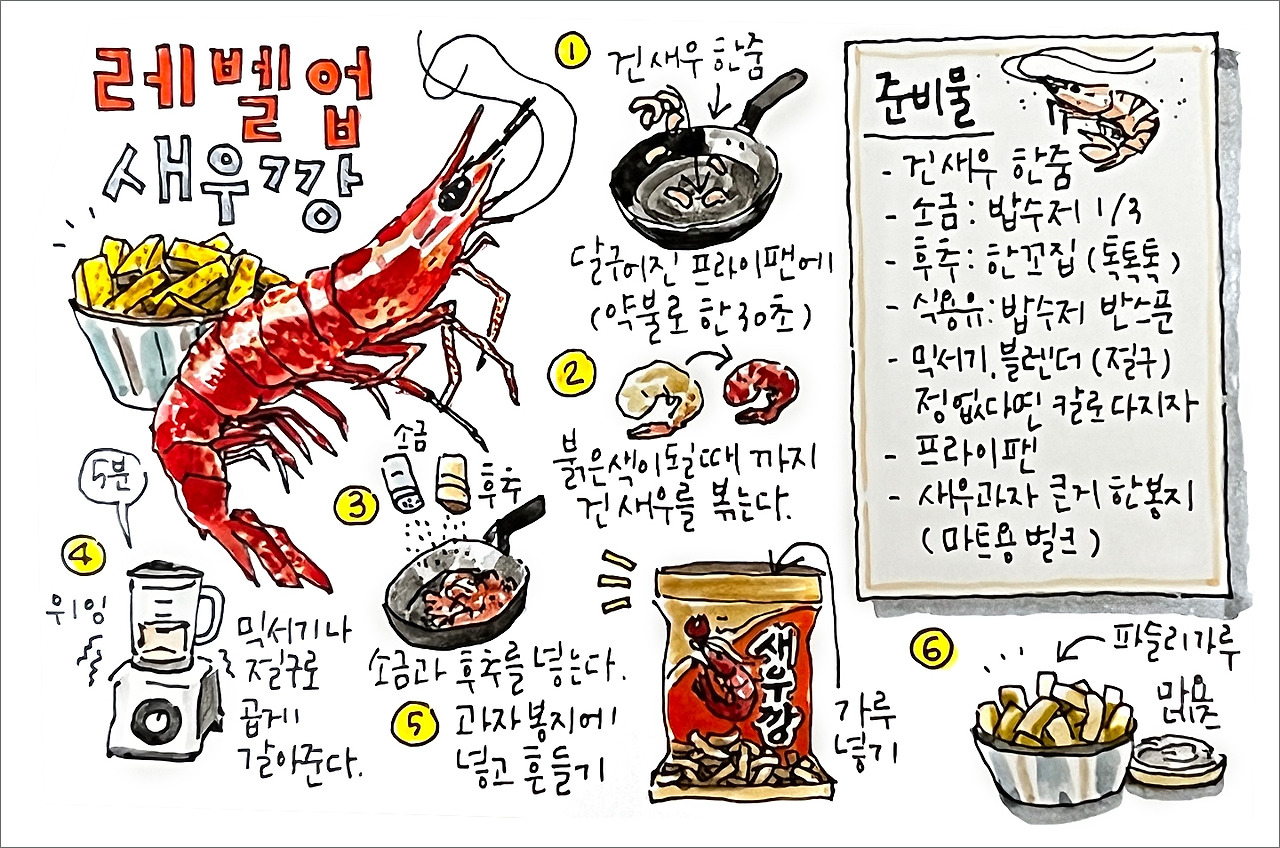 레벨업
새우깡
1
건새우 한줌
달구어진 프라이팬에
(약불로 한 30초)
2
붉은색이 될때 까지
건새우를 볶는다.
3
소금
후추
소금과 후추를 넣는다.
4
5분
위잉
믹서기나
절구로
곱게
갈아준다.
5
과자봉지에
넣고 흔들기
새우깡
가루
넣기
6
파슬리가루
마요네즈
준비물
- 건새우 한줌
- 소금: 밥수저 1/3
- 후추: 한꼬집 (톡톡톡)
- 식용유: 밥수저 반스푼
- 믹서기, 블렌더 (절구)
정 없다면 칼로 다지자
- 프라이팬
- 새우과자 큰거 한봉지
(마트용 벌크)